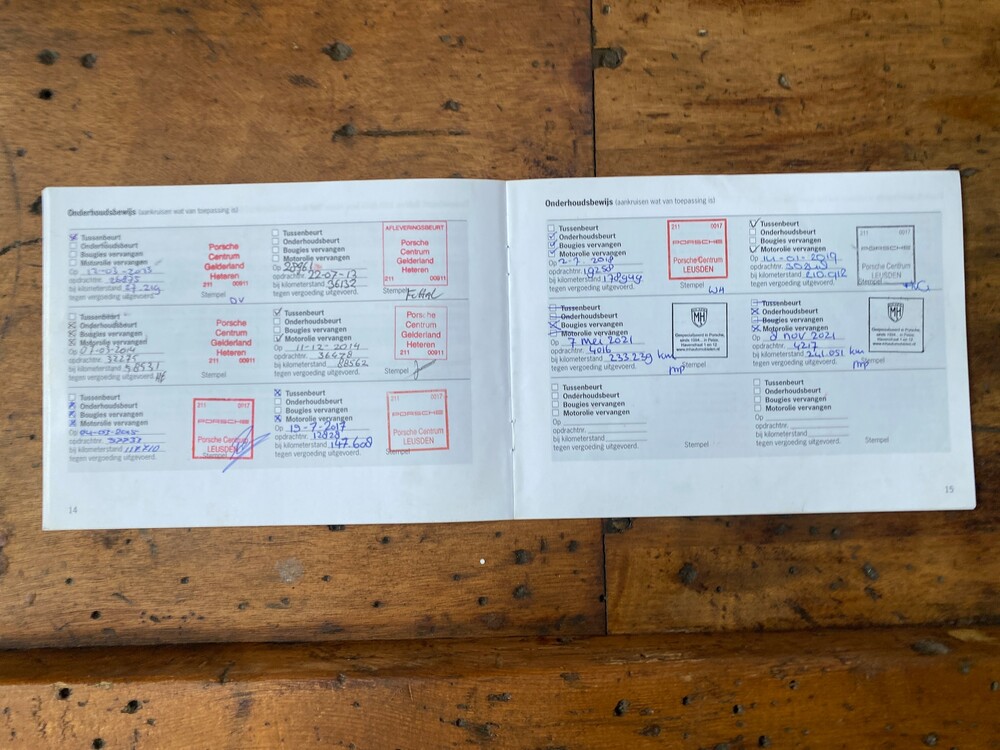 Onderhoudsbewijs (aankruisen wat van toepassing is)
Tussenbeurt
Onderhoudsbeurt
Bougies vervangen
Motorolie vervangen
Op 12-03-2013
opdrachtnr.
bij kilometerstand
tegen vergoeding uitgevoerd.
Porsche
Centrum
Gelderland
Heteren
211 00911
Stempel
DV
Tussenbeurt
Onderhoudsbeurt
Bougies vervangen
Motorolie vervangen
Op 28961
opdrachtnr. 22-07-13
bij kilometerstand 36132
tegen vergoeding uitgevoerd.
AFLEVERINGSBEURT
Porsche
Centrum
Gelderland
Heteren
211 00911
Stempel
Tussenbeurt
Onderhoudsbeurt
Bougies vervangen
Motorolie vervangen
Op
opdrachtnr. 32275
bij kilometerstand 58531
tegen vergoeding uitgevoerd.
Porsche
Centrum
Gelderland
Heteren
211 00911
Stempel
Tussenbeurt
Onderhoudsbeurt
Bougies vervangen
Motorolie vervangen
Op 11-12-2014
opdrachtnr. 36478
bij kilometerstand 88562
tegen vergoeding uitgevoerd.
Porsche
Centrum
Gelderland
Heteren
211 00911
Stempel
Tussenbeurt
Onderhoudsbeurt
Bougies vervangen
Motorolie vervangen
Op
opdrachtnr.
bij kilometerstand 117710
tegen vergoeding uitgevoerd.
211 0017
PORSCHE
Porsche Centrum
LEUSDEN
Stempel
Tussenbeurt
Onderhoudsbeurt
Bougies vervangen
Motorolie vervangen
Op 19-7-2017
opdrachtnr.
bij kilometerstand 147.608
tegen vergoeding uitgevoerd.
211 0017
PORSCHE
Porsche Centrum
LEUSDEN
Stempel
14
Onderhoudsbewijs (aankruisen wat van toepassing is)
Tussenbeurt
Onderhoudsbeurt
Bougies vervangen
Motorolie vervangen
Op 2-7-2018
opdrachtnr. 19258
bij kilometerstand 178949
tegen vergoeding uitgevoerd.
211 0017
PORSCHE
Porsche Centrum
LEUSDEN
Stempel
WH
Tussenbeurt
Onderhoudsbeurt
Bougies vervangen
Motorolie vervangen
Op
opdrachtnr.
bij kilometerstand 210.918
tegen vergoeding uitgevoerd.
211 0017
PORSCHE
Porsche Centrum
LEUSDEN
Stempel
Tussenbeurt
Onderhoudsbeurt
Bougies vervangen
Motorolie vervangen
Op 7 mei 2021
opdrachtnr. 4016
bij kilometerstand 233.239 km
tegen vergoeding uitgevoerd.
MH
Stempel
MP
Tussenbeurt
Onderhoudsbeurt
Bougies vervangen
Motorolie vervangen
Op 2 nov 2021
opdrachtnr. 4217
bij kilometerstand 241.051 km
tegen vergoeding uitgevoerd.
MH
Stempel
MP
Tussenbeurt
Onderhoudsbeurt
Bougies vervangen
Motorolie vervangen
Op
opdrachtnr.
bij kilometerstand
tegen vergoeding uitgevoerd.
Stempel
Tussenbeurt
Onderhoudsbeurt
Bougies vervangen
Motorolie vervangen
Op
opdrachtnr.
bij kilometerstand
tegen vergoeding uitgevoerd.
Stempel
15